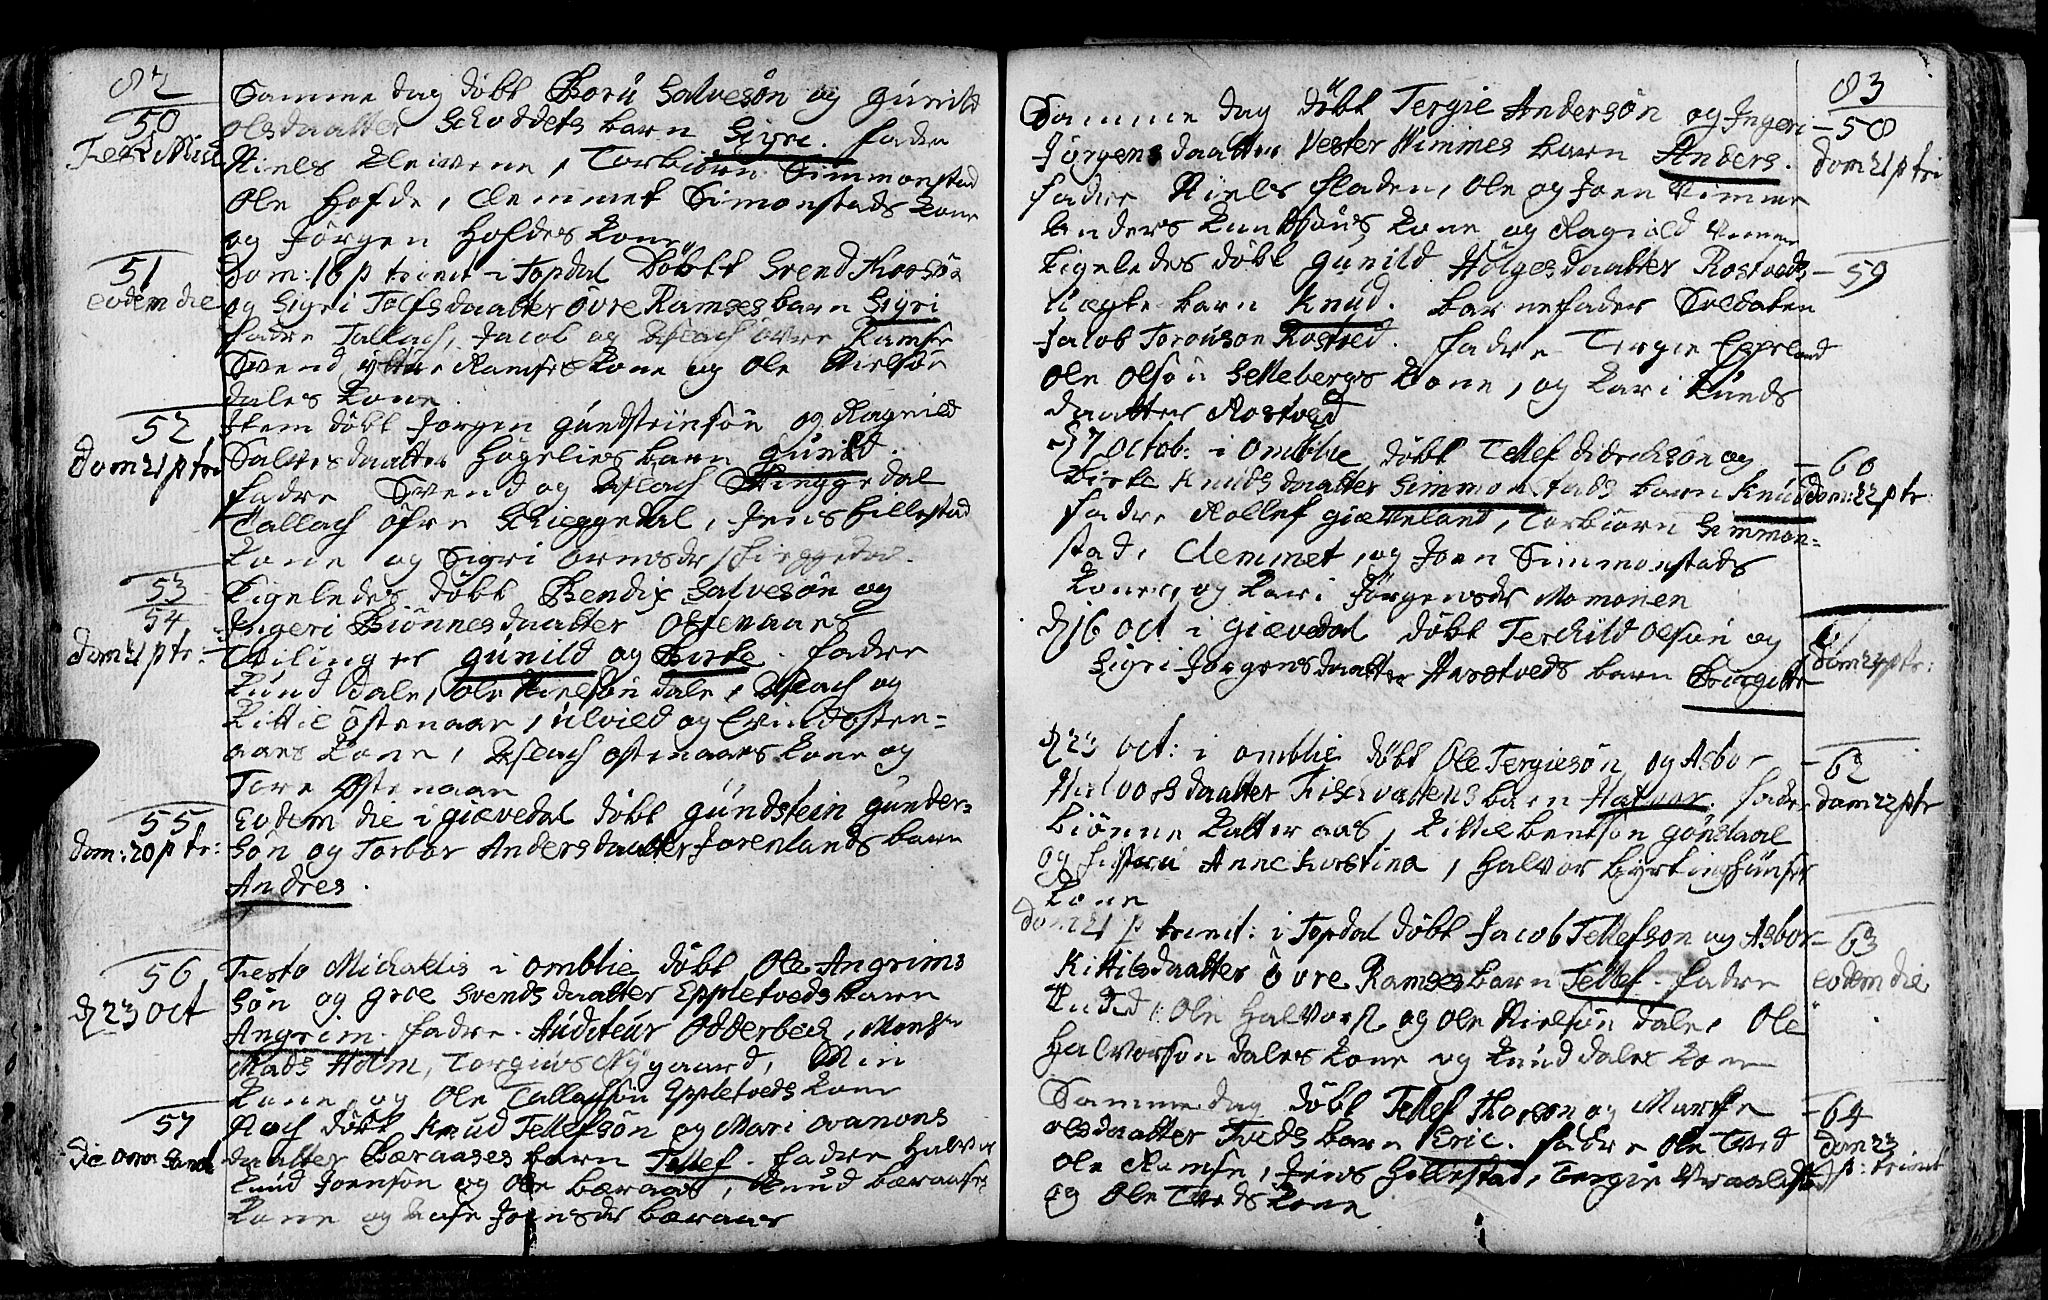 82
50
Fest Mich
Samme dag döbt Boru Salvesön og gunild
olsdaatter Schoddets barn Sigri. fadre
Niels Kleivene, Torbiörn Simmonstad
Ole Hofde, Clemmet Simonstads kone
og Jörgen Hofdes kone
51
eodem die
Dom: 16 p trinit i Topdal Döbtt Svend Thorsön
og Sigri Tolfsdaatter övre Ramses barn Sigri
fadre Tallach, Jacob og Aslach övre Ramse
Svend yttre Ramses kone og Ole Nielsön
dales kone
52
dom 21 p tri
Item döbt Jorgen gundsteinsön og Ragnild
Salvesdaatter Högelies barn gunild.
fadre Svend og Aslach Schieggedal
Tallach öfre Schieggedal, Jens Hillestad
kone og Sigri ormsdr Schieggedal.
53
54
dom 21 p tr:
Ligeledes döbt Bendix Salvesön og
Ingeri Biönnesdaatter Ostenaaes
Tvilinger gunild og Birte. fadre
Knud Dale, Ole Nielsön dale, Aslach og
Kittil östenaae, Ulvild og Evind östen=
aaes kone, Aslach ostenaaes kone og
Tore Ostenaae
55
dom: 20 p tr:
Eodem die i giævedal döbt gundstein gunder=
sön og Torbor Andersdaatter forenlands barn
Andres.
56
d 23 oct
Festo Michaelis i omblie döbt Ole Angrims
sön og groe Svendsdaatter Eppletveds barn
Angrim. fadre. Auditeur Odderbech, Monsr
Mads Holm, Torgius Nygaard, Min
kone, og Ole Tallachsön Eppletveds kone
57
die omn sanct
Noch döbt Knud Tellefsön og Mari
daatter Bæraases barn Tellef. fadre Halvor
Knud Joensön og Ole bæraas, Knud bæraases
kone og Aase Joensdr bæraas
83
Samme dag döbt Tergie Andersön og Ingeri
Jörgensdaatter Vester Vimmes barn Anders.
fadre Niels fladen, Ole og Joen Vimme
Anders kone og Ragnild Vimme
58
dom 21 p tri
Ligeledes döbt gunild Helgesdaatter Rostveds
uægte barn Knud. barnefader Soldaten
Jacob Torousön Rostved. fadre Tergie Eppeland
Ole Olsön Selleberg kone, og Kari Knuds
daatter Rostved
59
d 7 octob: i omblie döbt Tellef Didrichsön og
Birte Knudsdaatter Simmonstads barn Knud
fadre Rollef giæveland, Torbiörn Simmon=
stad, Clemmet, og Joen Simmonstads
koner, og Kari Jörgensdr Momonen
60
dom: 22 p tr:
d 16 oct i giævedal döbt Terchild olsön og
Sigri Jorgensdaatter Harstveds barn Birgitte
61
dom 24 p tr:
d 23 oct: i omblie döbt Ole Tergiesön og Asbor
Halvorsdaatter Fischvattens barn Halvor. fadre
biönne Katteraas, Kittel bentsön gönstaal
og Anne Kirstina, Halvor
kone
62
dom 22 p tr
dom 21 p trinit: i Topdal döbt Jacob Tellefsön og Asbor
Kittilsdaatter övre Ramses barn Tellef. fadre
Knud, Ole Halvors: og Ole Nielsön dale, Ole
Halvorsön dales kone og Knud dales kone
63
eodem die
Samme dag döbt Tellef Thorsön og Marte
olsdaatter Tveds barn Eric. fadre Ole Tved
Ole Ramse, Jens Hillestad, Tergie Vraalstad
og Ole Tveds kone
64
dom 23
p: trinit